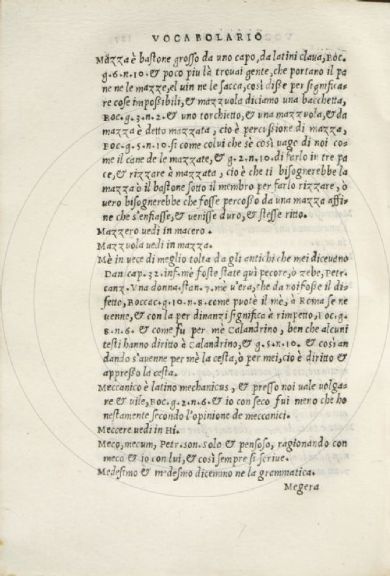 VOCABOLARIO
Mazza è bastone grosso da uno capo, da latini claua, Boc.
g.6.n.10. & poco piu là trouai gente, che portano il pa
ne ne le mazze, el uin ne le sacca, così disse per significa-
re cose impoßibili, & mazzuola diciamo una bacchetta,
Boc.g.3.n.2. & uno torchietto, & una mazzuola, & da
mazza è detto mazzata, cio è percußione di mazza,
Boc.g.5.n.10. si come colui che sè così uago di noi co-
me il cane de le mazzate, & g.2.n.10. di farlo in tre pa
ce, & rizzare a mazzata, cio è che ti bisognerebbe la
mazza ò il bastone sotto il membro per farlo rizzare, ò
uero bisognerebbe che fosse percosso da una mazza affi-
ne che s'enfiasse, & uenisse duro, & stesse ritto.
Mazzero uedi in macero.
Mazzuola uedi in mazza.
Mè in uece di meglio tolta da gli antichi che mei diceueno
Dan cap.32.inf. mè foste state quì pecore, ò zebe, Petr.
canz. Vna donna. stan.7. mè u'era, che da noi fosse il di
fetto, Boccac.g.10.n.8. come puote il mè, à Roma se ne
uenne, & con la per dinanzi significa à rimpetto, Boc.g.
8.n.6. & come fu per mè Calandrino, ben che alcuni
testi hanno diritto à Calandrino, & g.5.n.10. & così an
dando s'auenne per mè la cesta, ò per mei, cio è diritto &
appresso la cesta.
Meccanico è latino mechanicus, & presso noi uale uolga-
re & uile, Boc.g.2.n.6. & io con seco fui meno che ho
nestamente secondo l'opinione de meccanici.
Meccere uedi in Hi.
Meco, mecum, Petr.son. Solo & pensoso, ragionando con
meco & io con lui, & così sempre si scriue.
Medesimo & medesmo dicemmo ne la grammatica.
Megera